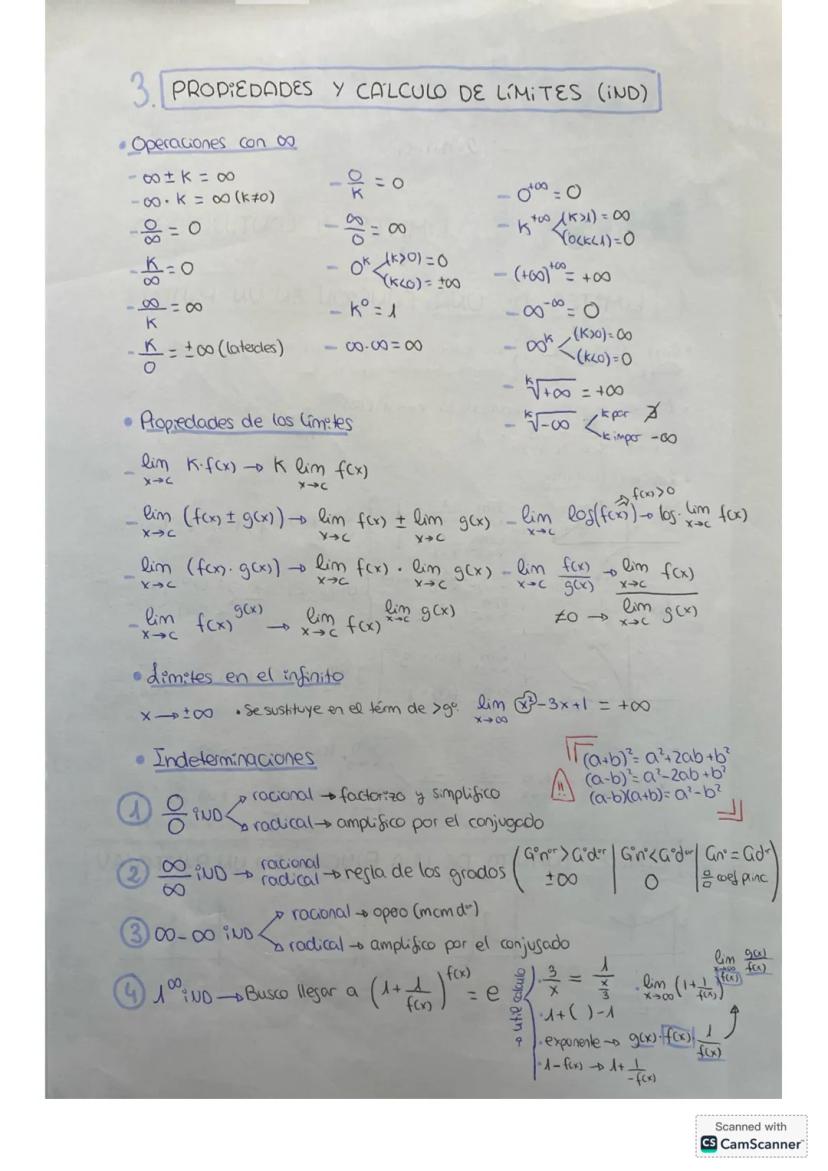 3. PROPIEDADES Y CÁLCULO DE LÍMITES (IND)
• Operaciones con ∞
- ∞ ± K = ∞
- ∞ · K = ∞ (K≠0)
- 0/∞ = 0
- K/∞ = 0
- ∞/K = ∞
- K/0 = ±∞ (laterales)
- 0/K = 0
- ∞/0 = ∞
- 0^K (K>0) = 0
(K<0) = ±∞
- K^0 = 1
- ∞·∞ = ∞
- 0^+∞ = 0
- K^+∞ (K>1) = ∞
(0<K<1) = 0
- (+∞)^+∞ = +∞
- ∞^-∞ = 0
- ∞^K (K>0) = ∞
(K<0) = 0
- ᴷ√+∞ = +∞
- ᴷ√-∞ K par ∄
K impar -∞
• Propiedades de los límites
- lim x→c K·f(x) → K lim x→c f(x)
- lim x→c (f(x) ± g(x)) → lim x→c f(x) ± lim x→c g(x) - lim x→c log(f(x)) → log · lim x→c f(x)
⇒ f(x)>0
- lim x→c (f(x) · g(x)) → lim x→c f(x) · lim x→c g(x) - lim x→c f(x)/g(x) → lim x→c f(x) / lim x→c g(x)
≠0 →
- lim x→c f(x)^g(x) → lim x→c f(x)^lim x→c g(x)
• Límites en el infinito
x → ±∞ • Se sustituye en el térm de >gº lim x→∞ x²-3x+1 = +∞
• Indeterminaciones
(a+b)² = a²+2ab+b²
(a-b)² = a²-2ab+b²
(a-b)(a+b) = a²-b²
!!
① 0/0 IND racional → factorizo y simplifico
radical → amplifico por el conjugado
② ∞/∞ IND → racional radical → regla de los grados (Gºnºʳ > Gºdºʳ ±∞ | Gºnº < Gºdºʳ 0 | Gnº = Gdʳ a/a coef princ)
③ ∞-∞ IND racional → opero (mcm dºʳ)
radical → amplifico por el conjugado
④ 1^∞ IND → Busco llegar a (1 + 1/f(x))^f(x) = e
→ útil cálculo
· 3/x = 1/(x/3)
· 1+( )-1
· exponente → g(x) · f(x) · 1/f(x)
· 1-f(x) → 1 + 1/-f(x)
· lim x→∞ (1 + 1/f(x))^f(x) lim x→∞ g(x)/f(x)
Scanned with
CS CamScanner